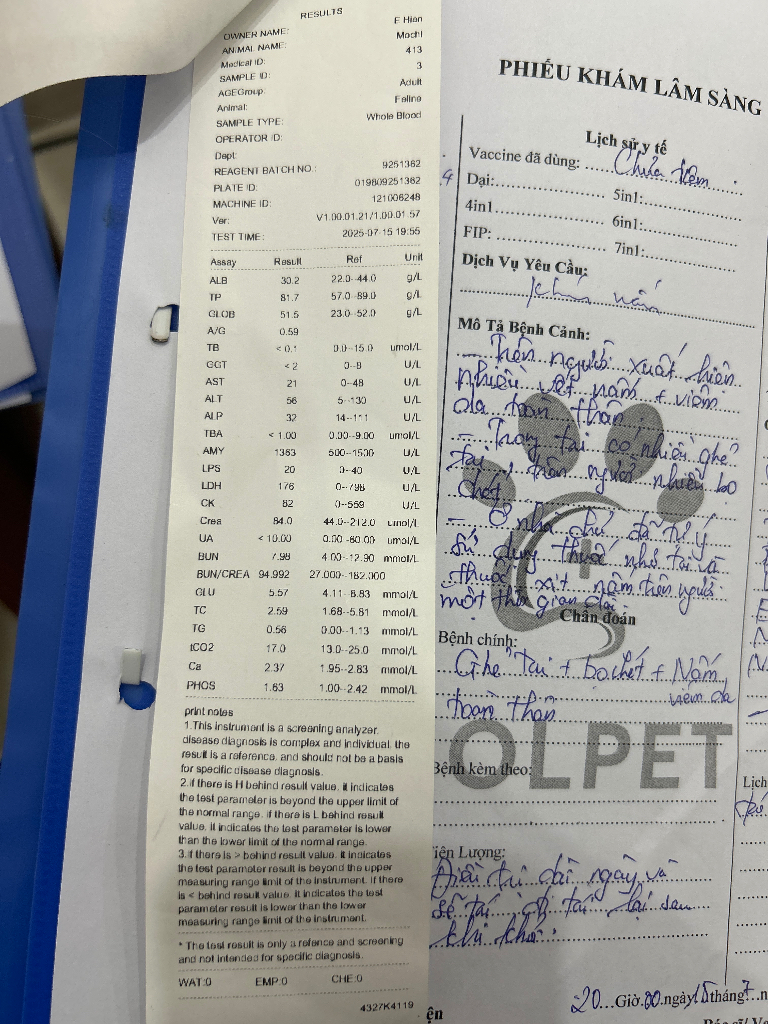 RESULTS
OWNER NAME: F Hien
ANIMAL NAME: Mochi
Medical ID: 413
SAMPLE ID: 3
AGEGroup: Adult
Animal: Feline
SAMPLE TYPE: Whole Blood
OPERATOR ID:
Dept:
REAGENT BATCH NO.: 9251362
PLATE ID: 019809251362
MACHINE ID: 121006248
Ver: V1.00.01.21/1.00.01.57
TEST TIME: 2025-07-15 19:55
Assay Result Ref Unit
ALB 30.2 22.0--44.0 g/L
TP 81.7 57.0--89.0 g/L
GLOB 51.5 23.0--52.0 g/L
A/G 0.59
TB < 0.1 0.0--15.0 umol/L
GGT < 2 0--8 U/L
AST 21 0--48 U/L
ALT 56 5--130 U/L
ALP 32 14--111 U/L
TBA < 1.00 0.00--9.00 umol/L
AMY 1363 500--1500 U/L
LPS 20 0--40 U/L
LDH 176 0--798 U/L
CK 82 0--559 U/L
Crea 84.0 44.0--212.0 umol/L
UA < 10.00 0.00--60.00 umol/L
BUN 7.98 4.00--12.90 mmol/L
BUN/CREA 94.992 27.000--182.000
GLU 5.57 4.11--8.83 mmol/L
TC 2.59 1.68--5.81 mmol/L
TG 0.56 0.00--1.13 mmol/L
tCO2 17.0 13.0--25.0 mmol/L
Ca 2.37 1.95--2.83 mmol/L
PHOS 1.63 1.00--2.42 mmol/L
print notes
1.This instrument is a screening analyzer.
disease diagnosis is complex and individual. the
result is a reference, and should not be a basis
for specific disease diagnosis.
2.if there is H behind result value. it indicates
the test parameter is beyond the upper limit of
the normal range. if there is L behind result
value. it indicates the test parameter is lower
than the lower limit of the normal range.
3.if there is > behind result value. it indicates
the test parameter result is beyond the upper
measuring range limit of the instrument. if there
is < behind result value. it indicates the test
parameter result is lower than the lower
measuring range limit of the instrument.
* The test result is only a refence and screening
and not intended for specific diagnosis.
WAT:0 EMP:0 CHE:0
4327K4119
PHIẾU KHÁM LÂM SÀNG
Lịch sử y tế
Vaccine đã dùng: Chưa tiêm
Dại: 5in1:
4in1 6in1:
FIP: 7in1:
Dịch Vụ Yêu Cầu:
khám nấm
Mô Tả Bệnh Cảnh:
- Trên người xuất hiện
nhiều vết nấm + viêm
da toàn thân
- Trong tai có nhiều ghẻ
tai, trên người nhiều bọ
chét
- Ở nhà chủ đã tự ý
sử dụng thuốc nhỏ tai và
thuốc xịt nấm trên người
một thời gian dài
Chẩn đoán
Bệnh chính:
Ghẻ tai + bọ chét + Nấm
viêm da
toàn thân
OLPET
Bệnh kèm theo:
iên Lượng:
Điều trị dài ngày và
sẽ tái đi tái lại sau
khi khỏi.
20 Giờ 00 ngày 15 tháng 7